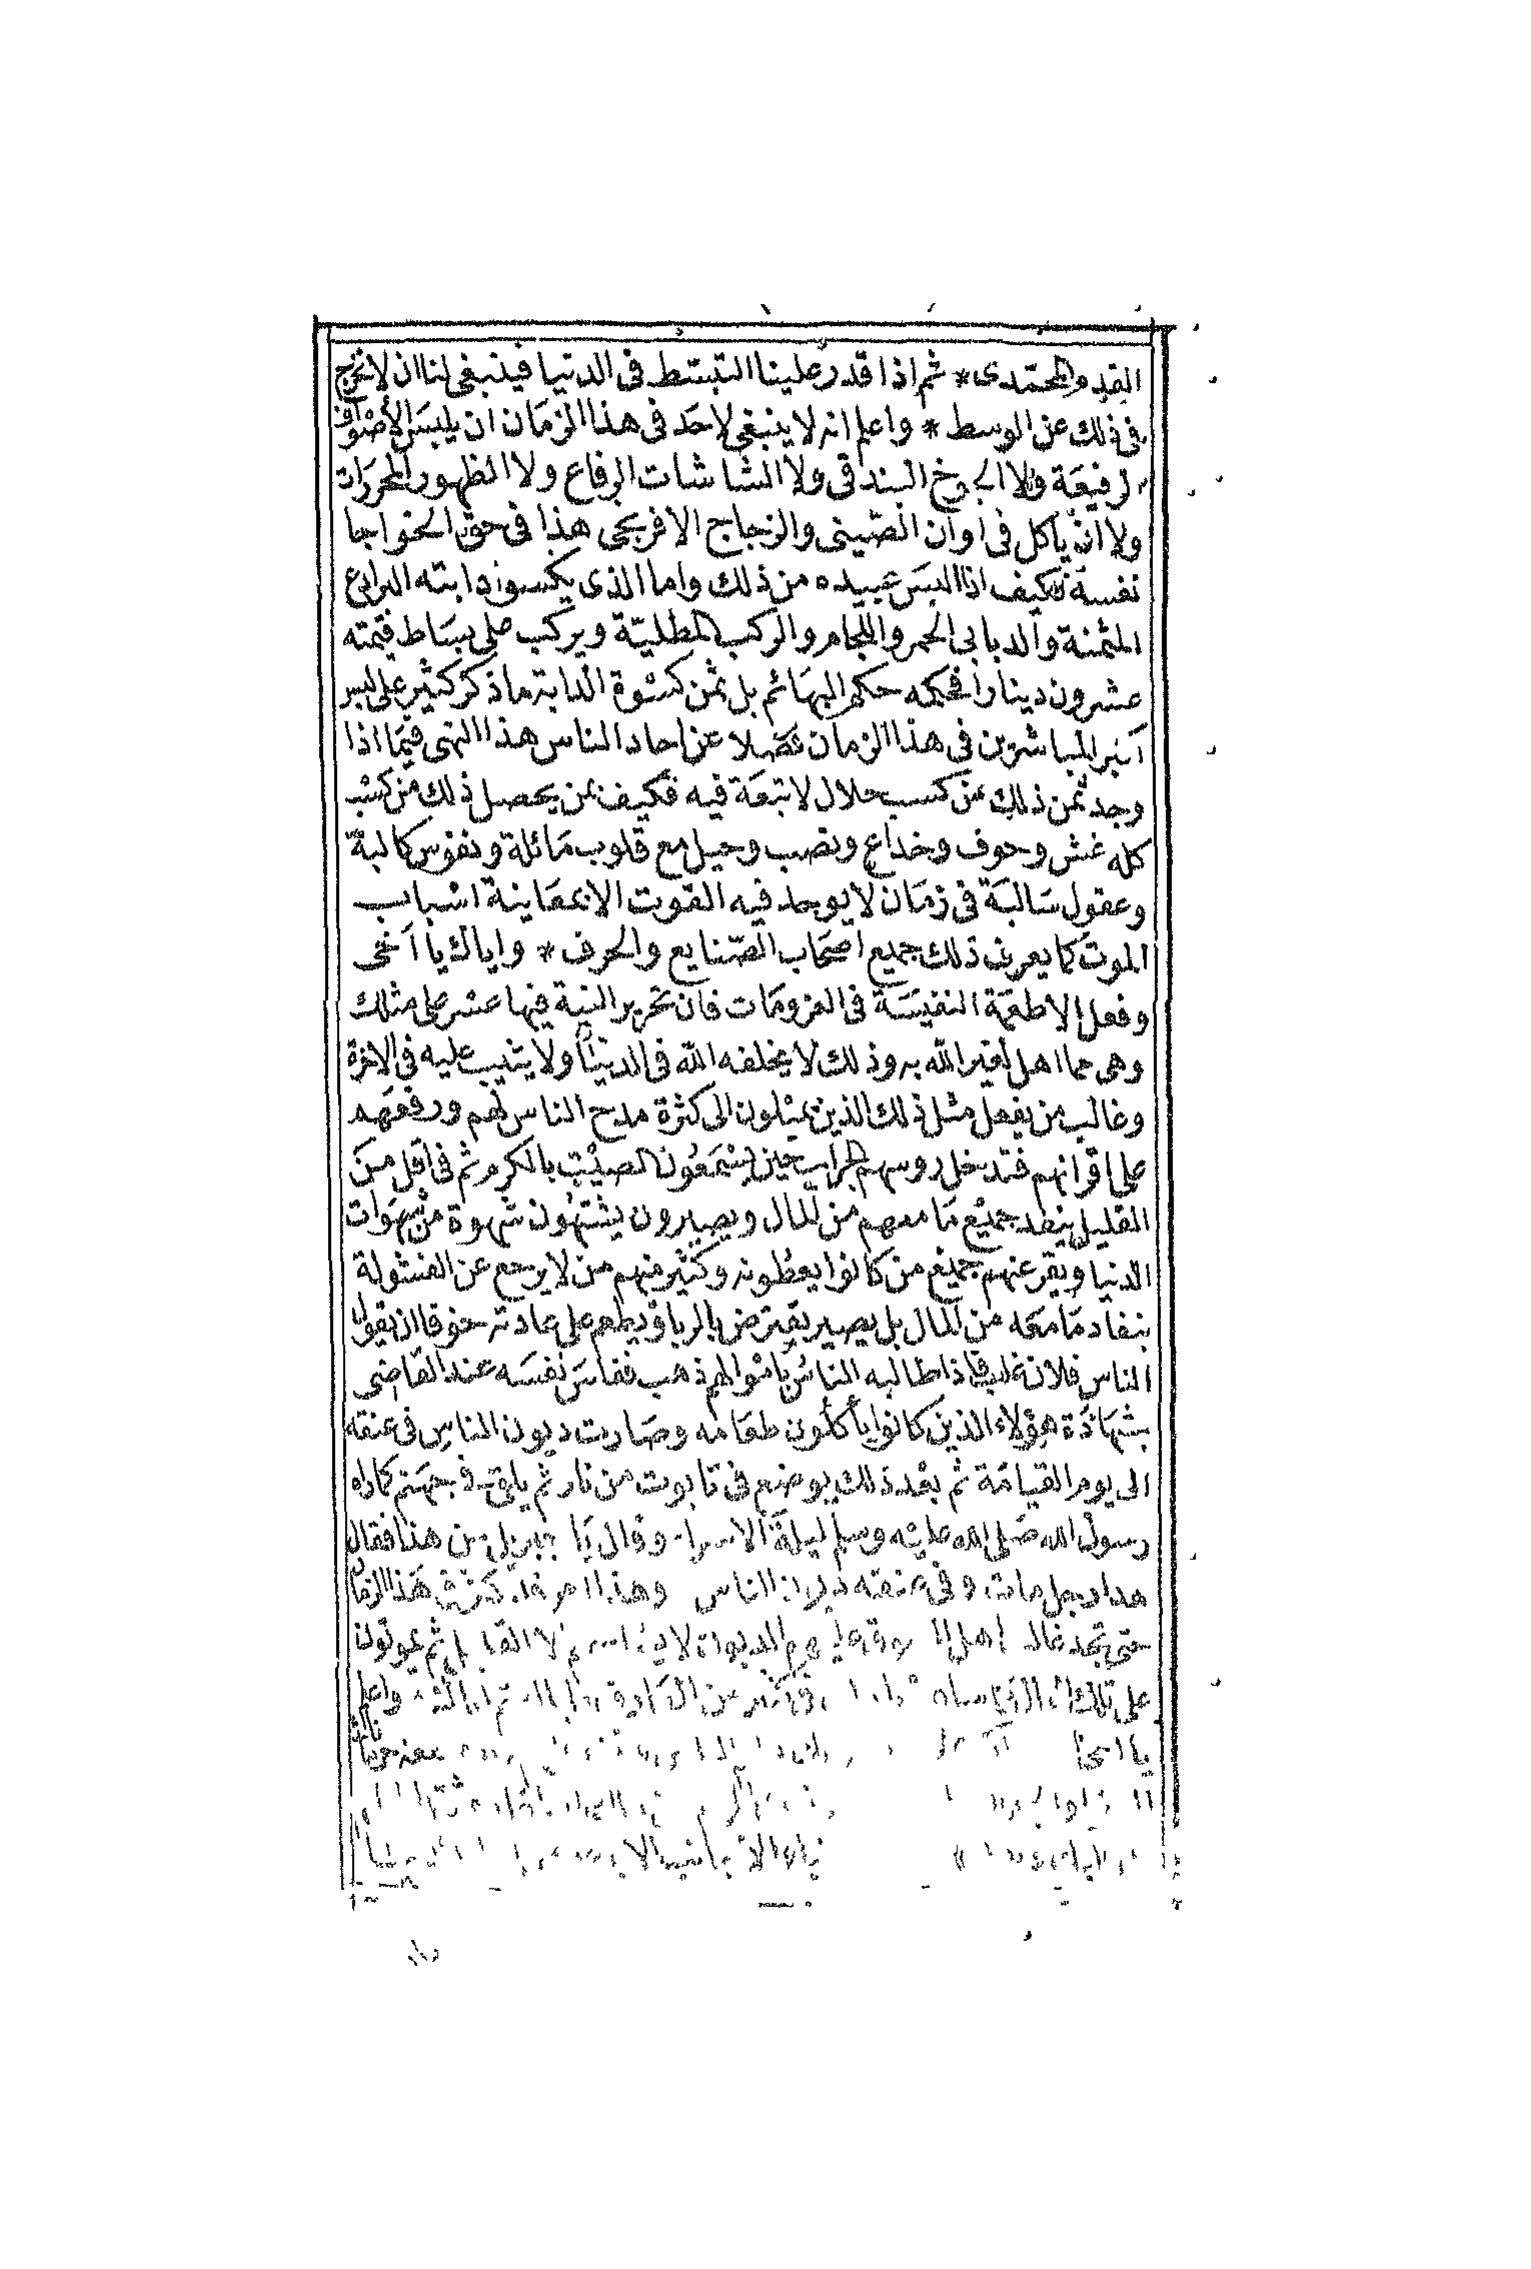 القدم المحمدى * ثم اذا قدر علينا التبسط فى الدنيا فينبغى لنا ان لا نخرج
فى ذلك عن الوسط * واعلم انه لا ينبغى لاحد فى هذا الزمان ان يلبس الأصواف
الرفيعة ولا الجوخ البندقى ولا الشاشات الرفاع ولا الظهور المحررات
ولا ان ياكل فى اوان الصينى والزجاج الافرنجى هذا فى حق الخواجا
نفسه فكيف اذا البس عبيده من ذلك واما الذى يكسو دابته البرادع
المثمنة والدبابى الحمر واللجام والركب المطلية ويركب على بساط قيمته
عشرون دينارا فحكمه حكم البهائم بل ثمن كسوة الدابة ما ذكر كثير على لبس
اكبر المباشرين فى هذا الزمان فضلا عن احاد الناس هذا النهى فيما اذا
وجد ثمن ذلك من كسب حلال لا تبعة فيه فكيف بمن يحصل ذلك من كسب
كله غش وحوف وخداع ونصب وحيل مع قلوب مائلة ونفوس كالبة
وعقول سالبة فى زمان لا يوجد فيه القوت الا بمعاينة اسباب
الموت كما يعرف ذلك جميع اصحاب الصنايع والحرف * واياك يا اخى
وفعل الاطعمة النفيسة فى العزومات فان تحرير النية فيها عسر على مثلك
وهى مما اهل لغير الله به وذلك لا يخلفه الله فى الدنيا ولا يثيب عليه فى الاخرة
وغالب من يفعل مثل ذلك الذين يميلون الى كثرة مدح الناس لهم ورفعهم
على اقرانهم فتدخل روسهم الجراب حين يسمعون الصيت بالكرم ثم فى اقل من
القليل ينفد جميع ما معهم من المال ويصيرون يشتهون شهوة من شهوات
الدنيا ويفر عنهم جميع من كانوا يعطونه وكثير منهم من لا يرجع عن الفشولة
بنفاد ما معه من المال بل يصير يقترض بالربا ويطعم على عادته خوفا ان يقول
الناس فلان غلب فاذا طالبه الناس باموالهم ذهب ففلس نفسه عند القاضى
بشهادة هؤلاء الذين كانوا يأكلون طعامه وصارت ديون الناس فى عنقه
الى يوم القيامة ثم بعد ذلك يوضع فى تابوت من نار ثم يلقى فى جهنم كما راه
رسول الله صلى الله عليه وسلم ليلة الاسرا وقال يا جبريل من هذا فقال
هذا رجل مات وفى عنقه ديون الناس وهذا امر قد كثر فى هذا الزمان
حتى تجد غالب اهل ثم يموتون
على تلك واعلم
يا اخى